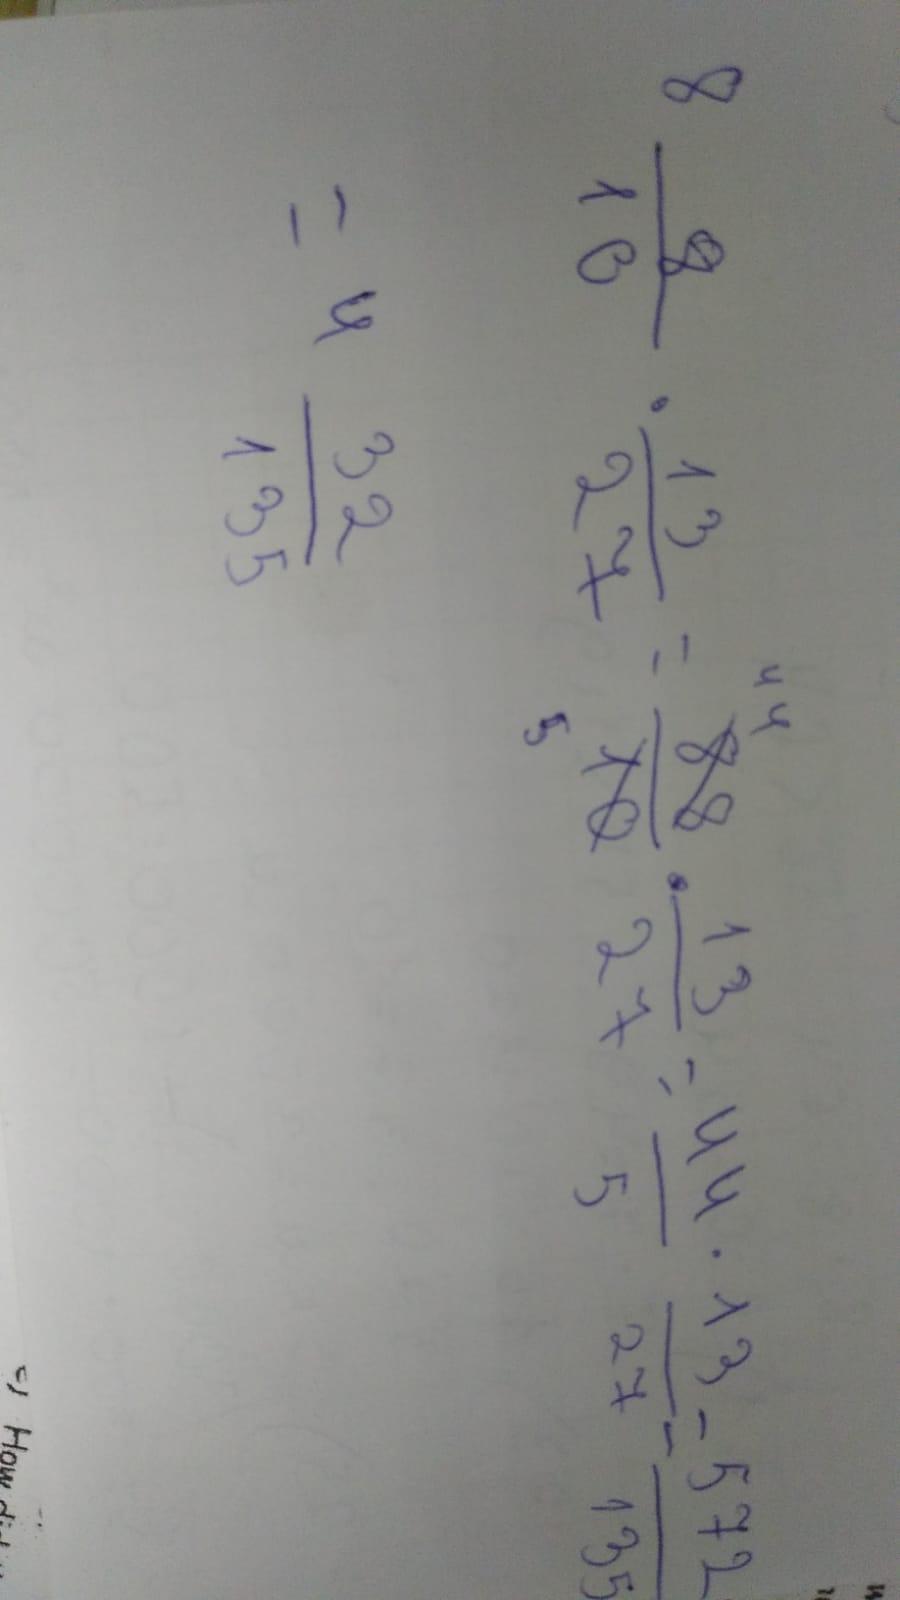 8 8/10 · 13/27 = 88/10 · 13/27 = 44/5 · 13/27 = 572/135
44
5
= 4 32/135
How did